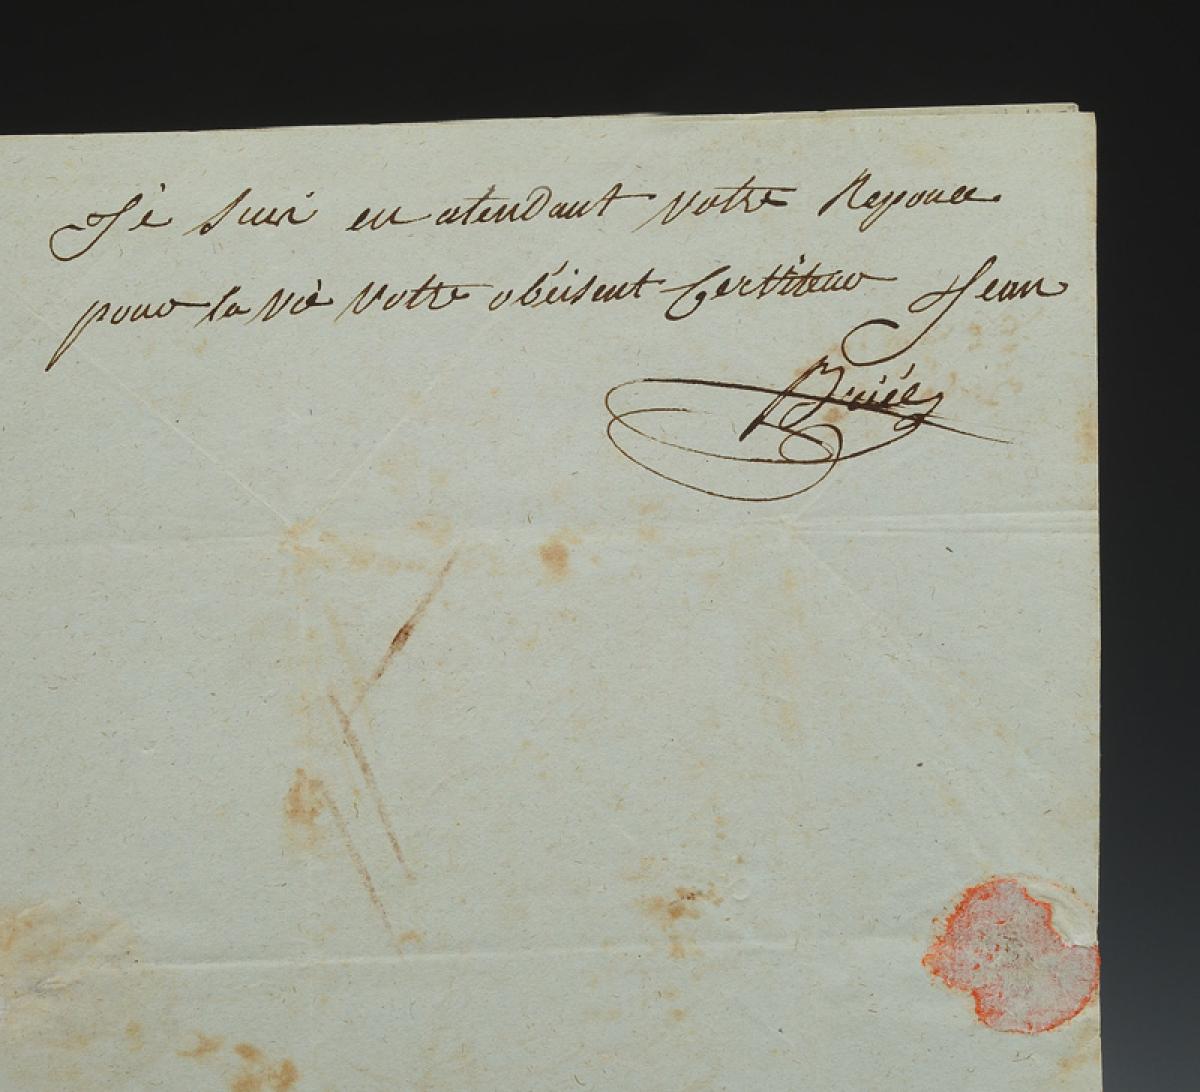 Jé Suis en atendant Votre Reponce
pour la vie Votre obéisent Cerviteur Jean
Boiée